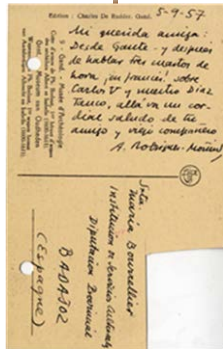 Edition : Charles De Rudder, Gand.
5-9-57
Mi querida amiga:
Desde Gante - y despues
de hablar tres cuartos de
hora ¡en francés! sobre
Carlos V y nuestro Díaz
Tanco, allá va un cor-
dial saludo de tu
amigo y viejo compañero
A. Rodríguez-Moñino
9 - Gand. - Musée d'Archéologie
Gent. - Museum van Oudheden
Srta
María Bourrellier
Institución de Servicios Culturales
Diputación Provincial
BADAJOZ
(Espagne)